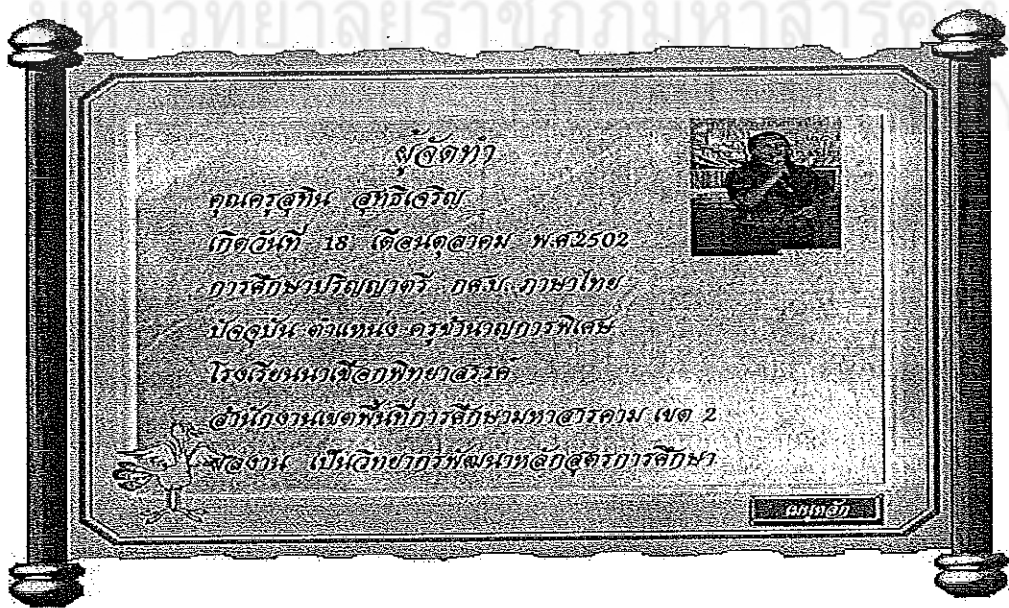 มหาวิทยาลัยราชภัฏมหาสารคาม
ผู้จัดทำ
คุณครูสุทิน สุทธิเจริญ
เกิดวันที่ 18 เดือนตุลาคม พ.ศ.2502
การศึกษาปริญญาตรี กศ.บ. ภาษาไทย
ปัจจุบัน ตำแหน่ง ครูชำนาญการพิเศษ
โรงเรียนนาเชือกพิทยาสรรค์
สำนักงานเขตพื้นที่การศึกษามหาสารคาม เขต 2
ผลงาน เป็นวิทยากรพัฒนาหลักสูตรการศึกษา
เมนูหลัก